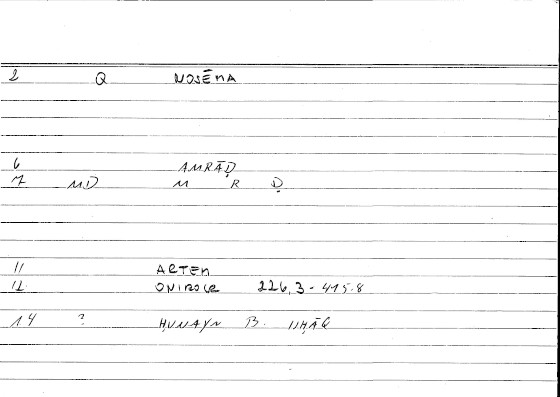 2 Q NOSĒMA
6 AMRĀḌ
7 MD M R Ḍ
11 ARTEM
12 ONIROCR 226,3-415.8
14 ? ḤUNAYN B. ISḤĀQ